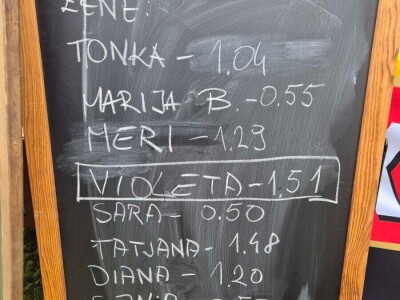 ŽENE:
TONKA - 1.04
MARIJA B. - 0.55
MERI - 1.29
VIOLETA - 1.51
SARA - 0.50
TATJANA - 1.48
DIANA - 1.20